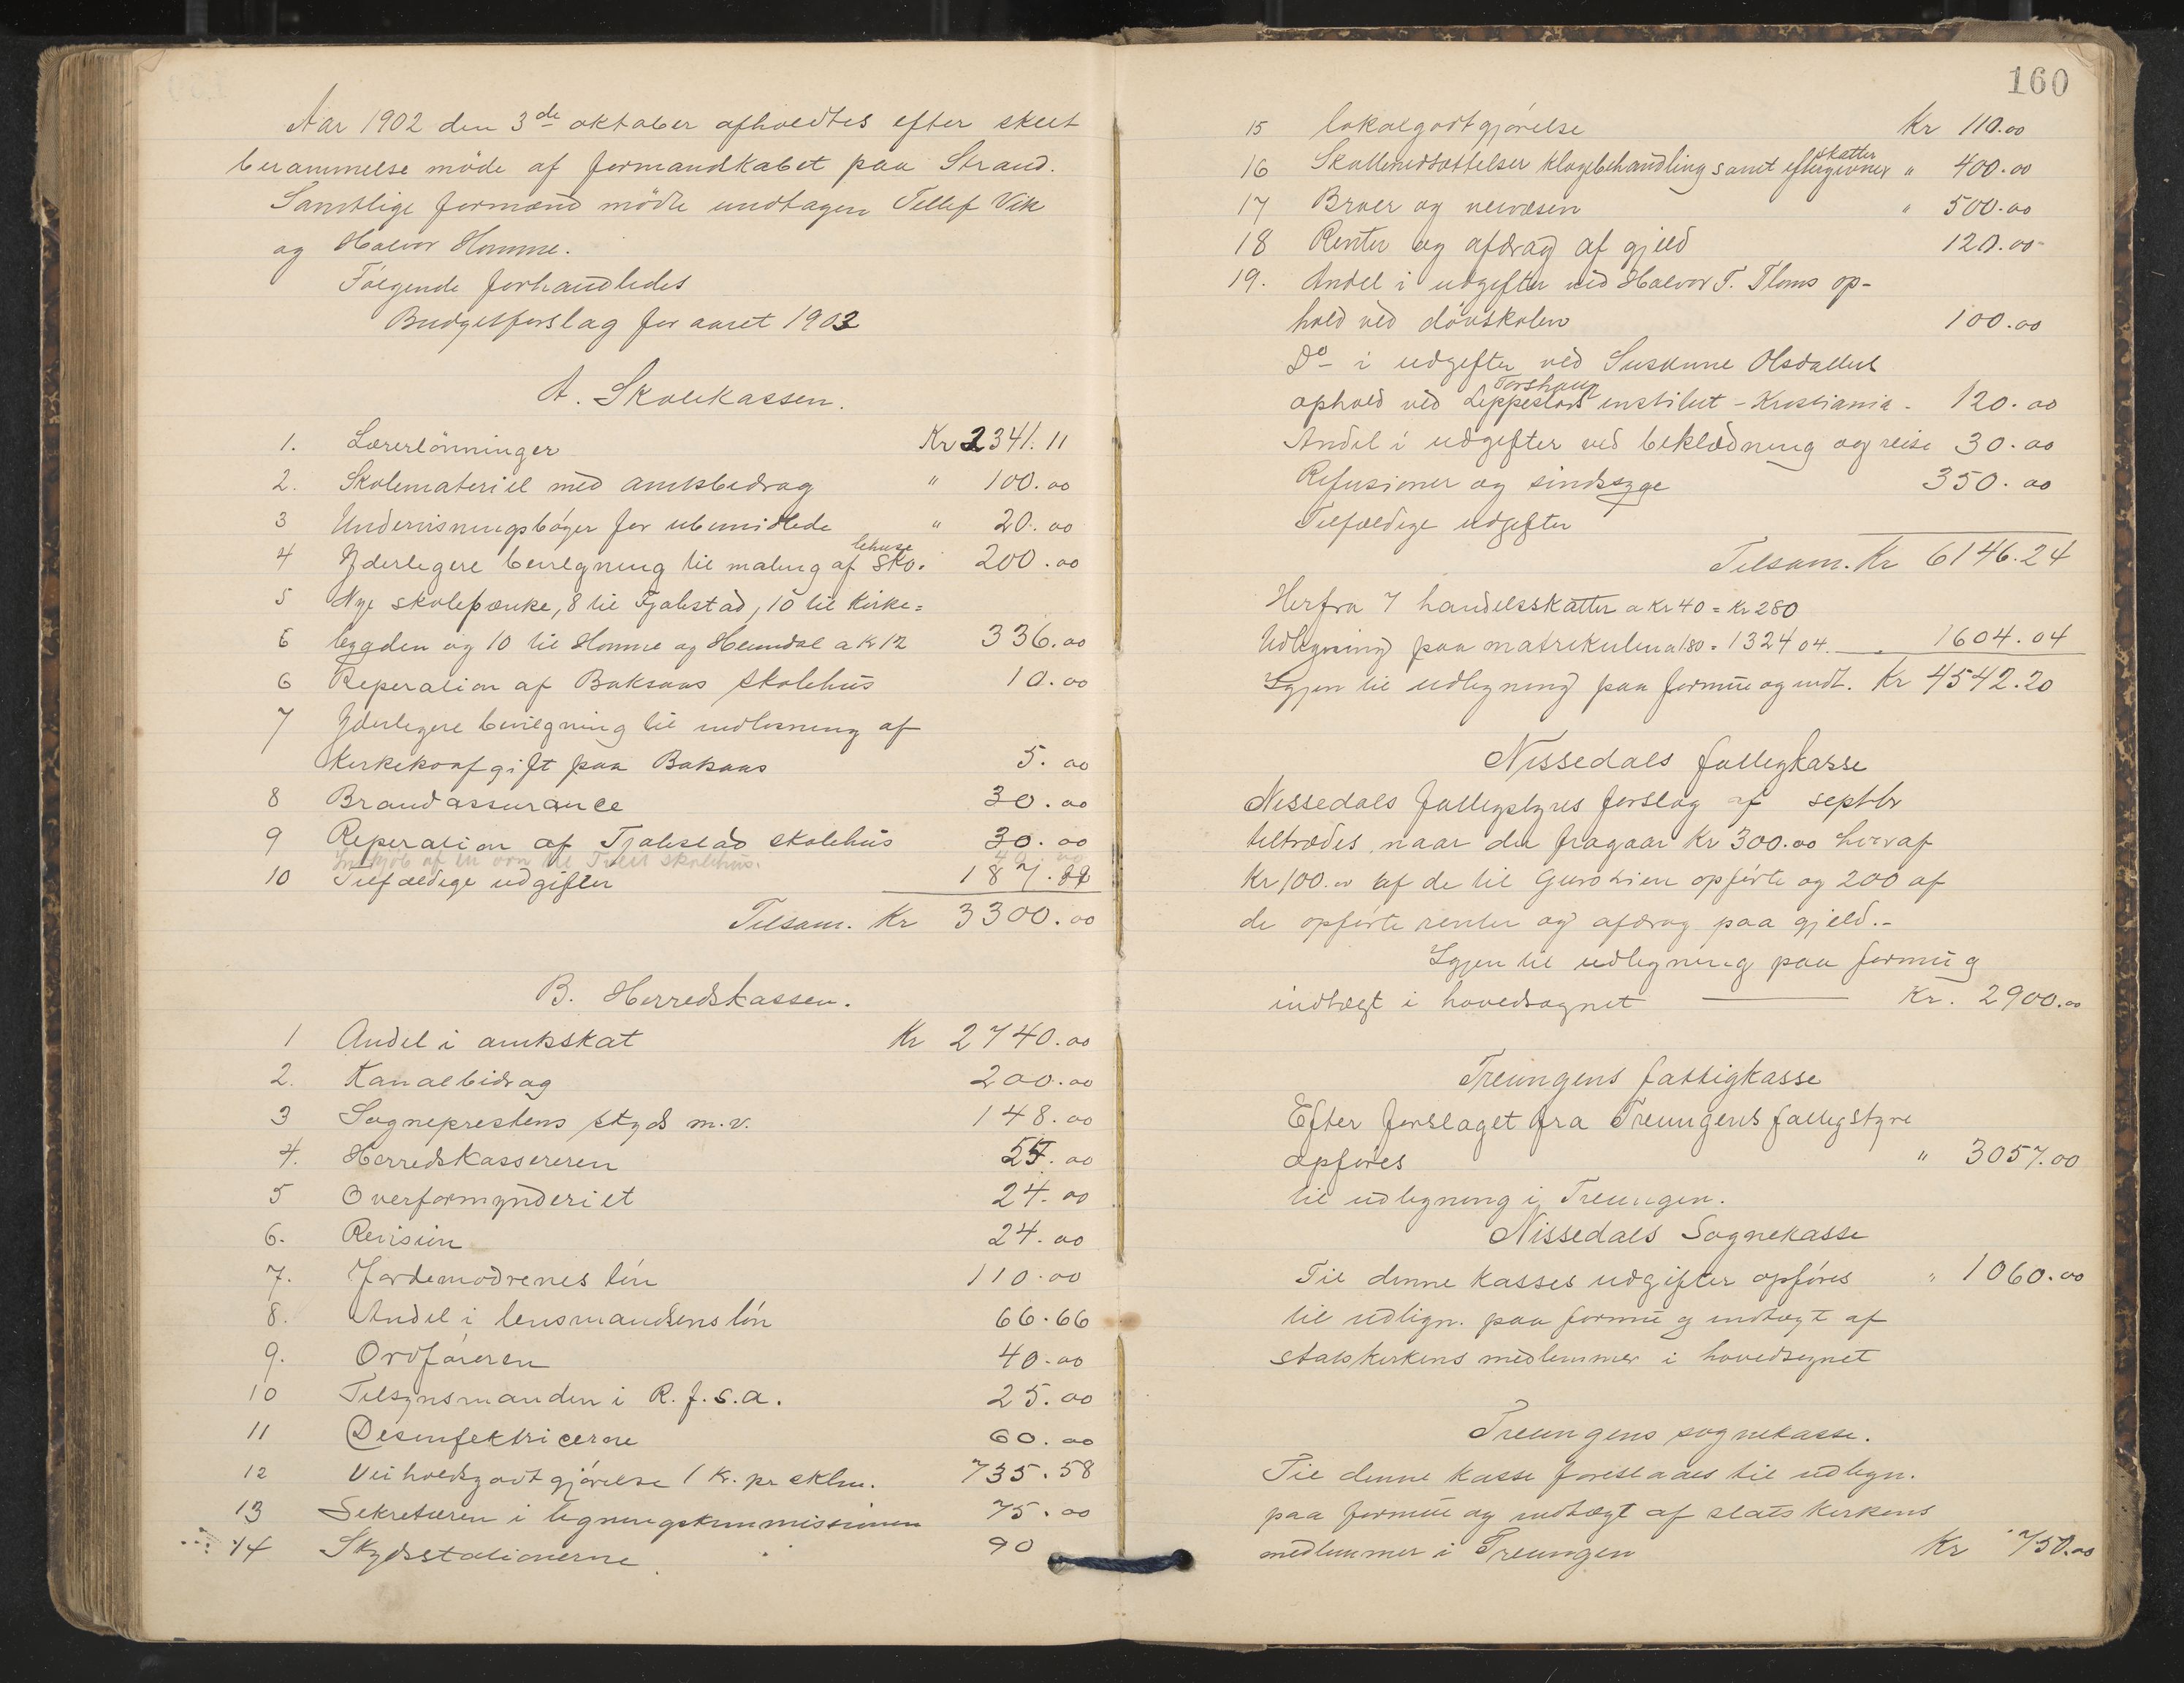 Aar 1902 den 3de oktober afholdtes efter skeet
berammelse möde af formandskabet paa Strand.
Samtlige formænd mödte undtagen Tellef Vik
og Halvor Homme.
Følgende forhandledes
Budgetforslag for aaret 1903
A. Skolekassen.
1. Lærerlönninger Kr 2341.11
2. Skolemateriel med amtsbidrag " 100.00
3 Undervisningsböger for ubemidlede " 20.00
4 Yderligere bevilgning til maling af skolehuse 200.00
5 Nye skolepænke, 8 til Tjalestad, 10 til Kirke=
6 bygden og 10 til Homme og Heimdal a Kr 12 336.00
6 Reperation af Baksaas skolehus 10.00
7 Yderligere bevilgning til indlösning af
Kirkekoafgift paa Baksaas 5.00
8 Brandassurance 30.00
9 Reperation af Tjalestad skolehus 30.00
Indkjöb af en ovn til Tveit skolehus. 40.00
10 Tilfældige udgifter 187.89
Tilsam. Kr 3300.00
B. Herredskassen.
1 Andel i amtsskat Kr 2740.00
2. Kanalbidrag 200.00
3 Sogneprestens skyds m.v. 148.00
4. Herredskassereren 00
5 Overformynderiet 24.00
6. Revision 24.00
7. Jordemödrenes lön 110.00
8. Andel i lensmandens lön 66.66
9. Ordföreren 40.00
10 Tilsynsmanden i R.f.s.a. 25.00
11 Desinfektricerne 60.00
12 Veiholdsgodtgjörelse 1 Kr. pr sklm. 735.58
13 Sekretæren i ligningskommissionen 75.00
14 Skydsstationerne 90
160
15 Lokalgodtgjörelse Kr 110.00
16 Skattenedsættelser klagebehandling samt eftergivne skatter " 400.00
17 Broer og veivæsen " 500.00
18 Renter og afdrag af gjeld 120.00
19. Andel i udgifter ved Halvor T. Floms op-
hold ved dövskolen 100.00
Do i udgifter ved Susanne Olsdatters
ophold ved Torshaug institut - Kristiania - 120.00
Andel i udgifter ved beklædning og reise 30.00
Refusioner og sindssyge 350.00
Tilfældige udgifter
Tilsam. Kr 6146.24
Herfra 7 handelsskatter a Kr 40 = Kr 280
Udligning paa matrikulen a 180 = 1324 04. 1604.04
Igjen til udligning paa formue og indt. Kr 4542.20
Nissedals fattigkasse
Nissedals fattigstyres forslag af septbr
tiltrædes, naar der fragaar Kr 300.00 hvoraf
Kr 100.00 af de til opförte og 200 af
de opförte renter og afdrag paa gjeld.-
Igjen til udligning paa formue og
indtægt i hovedsognet Kr. 2900.00
Treungens fattigkasse
Efter forslaget fra Treungens fattigstyre
opföres " 3057.00
til udligning i Treungen.
Nissedals Sognekasse
Til denne kasses udgifter opföres " 1060.00
til udlign. paa formue og indtægt af
statskirkens medlemmer i hovedsognet
Treungens sognekasse.
Til denne kasse foreslaaes til udlign.
paa formue og indtægt af statskirkens
medlemmer i Treungen Kr 750.00